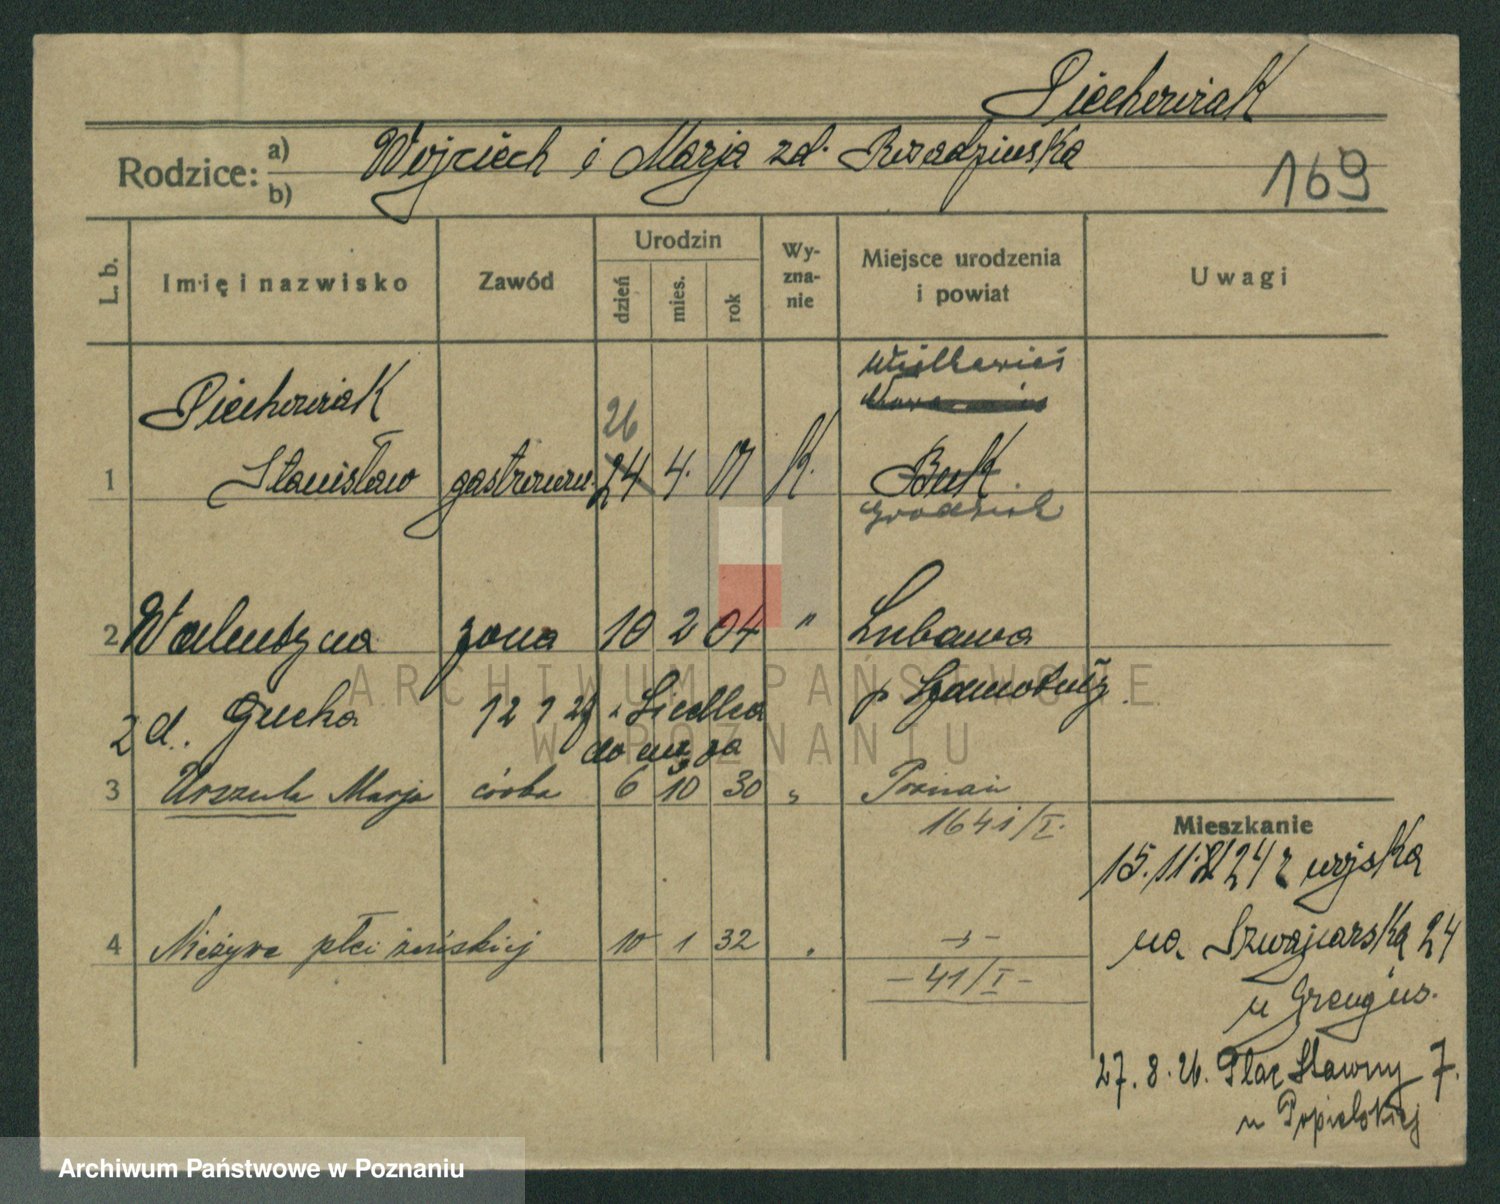 Piechowiak
Rodzice: a) b) Wojciech i Marja zd.
169
L. b. Imię i nazwisko Zawód Urodzin dzień mies. rok Wyznanie Miejsce urodzenia i powiat Uwagi
Piechowiak
26
1 Stanisław gastronom. 24 4. 01 K. Buk
Grodzisk
2 Walentyna żona 10 2 04 " Lubawa
2 d. Gucka 12 1 27 z Siedlca p Szamotuły
do męża
3 Urszula Marja córka 6 10 30 " Poznań
1641/I.
4 Nieżywe płci żeńskiej 10 1 32 " - " -
- 41/I -
Mieszkanie
15. 11. 24 z wojska
na Szwajcarską 24
u
27. 8. 26. Plac Sławny 7.
u Popielskiej
ARCHIWUM PAŃSTWOWE
W POZNANIU
Archiwum Państwowe w Poznaniu